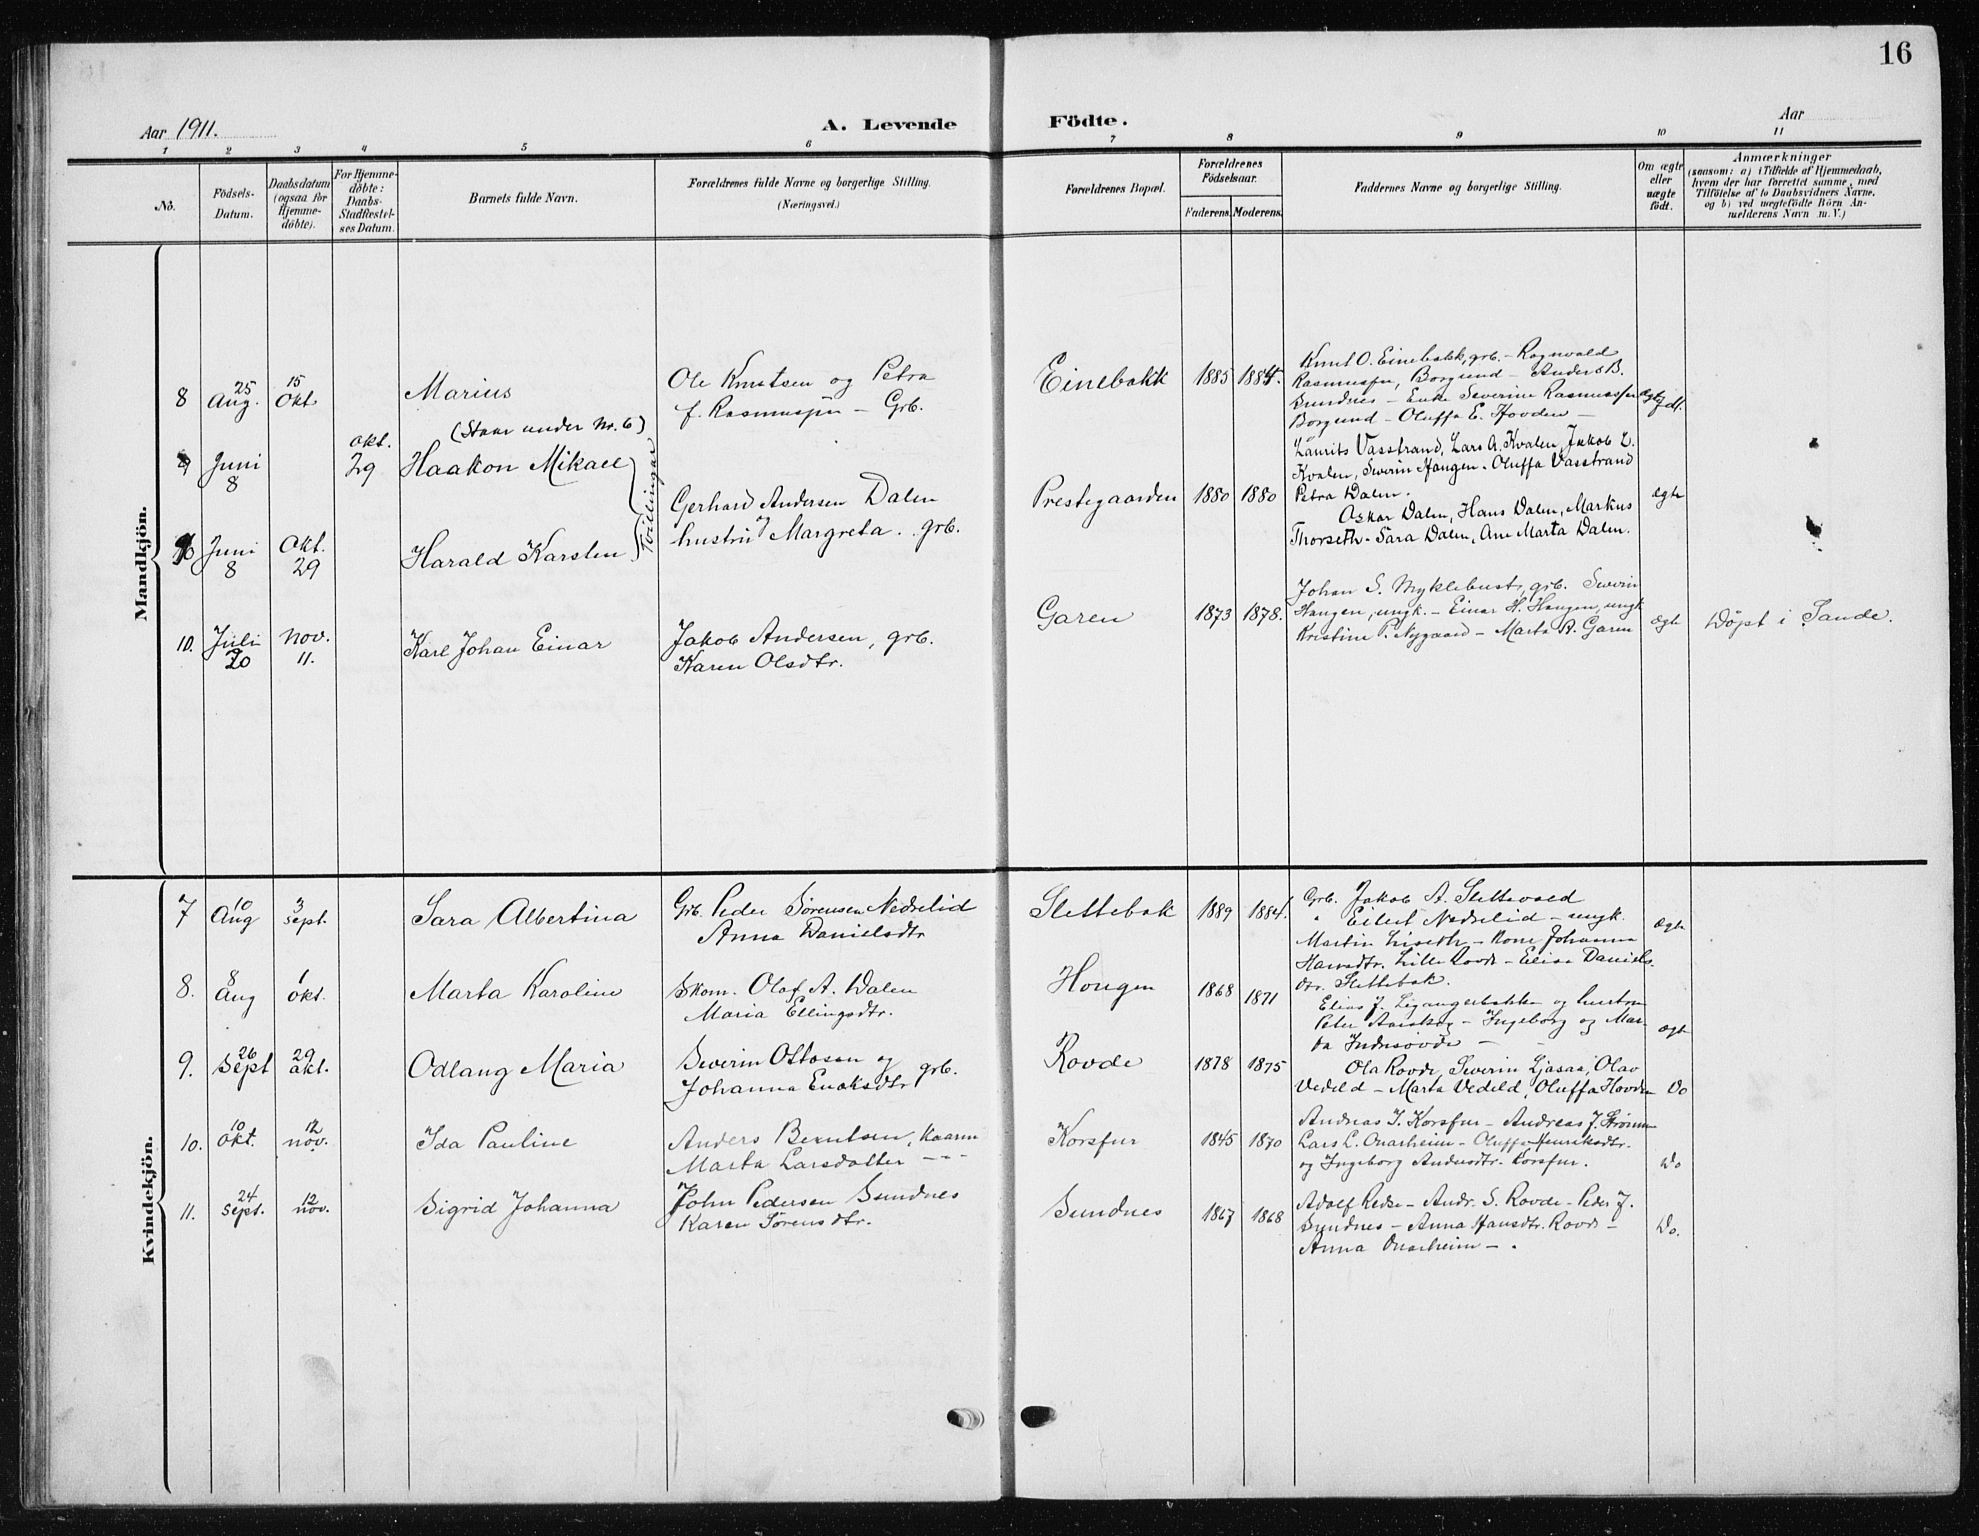 16
Aar 1911.
A. Levende Födte.
Aar
1 2 3 4 5 6 7 8 9 10 11
No.
Födsels-
Datum.
Daabsdatum
(ogsaa for
Hjemme-
døbte).
For Hjemme-
døbte:
Daabs-
Stadfestel-
ses Datum.
Barnets fulde Navn.
Forældrenes fulde Navne og borgerlige Stilling.
(Næringsvei.)
Forældrenes Bopæl.
Forældrenes
Födselsaar.
Faderens. Moderens.
Faddernes Navne og borgerlige Stilling.
Om ægte
eller
uægte
født.
Anmærkninger
(saasom: a) i Tilfælde af Hjemmedaab,
hvem der har forrettet samme, med
Tilföielse af to Daabsvidners Navne,
og b) ved uægtefödte Börn An-
melderens Navn m. V.)
Mandkjön.
8
25
Aug.
15
Okt
Marius
Ole Knutsen og Petra
f. Rasmusjen – Grb.
Einebakk
1885 1884.
Knut O. Einebakk, grb. – Ragnvald
Rasmusjen, Borgund – Anders B.
Sundnes – Enke Severine Rasmussen
Borgund – Oluffa E. Hovden –
(Staar under Nr. 6)
9
Juni
8
okt.
29
Haakon Mikael
Tvillingar
Gerhard Andersen Dalen
hustru Margreta . grb.
Prestegaarden
1880 1880
Laurits Vasstrand, Lars A. Kvalen, Jakob L.
Kvalen, Severin Haugen. Oluffa Vasstrand
Petra Dalen.
Oskar Dalen, Hans Dalen, Markus
Thorseth – Sara Dalen, Ane Marta Dalen.
ægte
10
Juni
8
Okt.
29
Harald Karsten
10.
Juli
20
Nov.
11.
Karl Johan Einar
Jakob Andersen, grb.
Karen Olsdtr.
Garen
1873 1878.
Johan S. Myklebust, grb. Severin
Haugen, ungk. – Einar H. Haugen, ungk
Kristine P. Nygaard – Marta A. Garen
ægte
Døpt i Sande.
Kvindekjön.
7
10
Aug
3
Sept.
Sara Albertina
Grb. Peder Sørensen Nedrelid
Anna Danielsdtr
Slettebak
1889 1884.
Grb. Jakob A. Slettevold
" Eilert Nedrelid – ungk.
Martin Liseth – Kone Johanna
Hansdtr. Lille Rovde – Elise Daniels-
dtr. Slettebak.
ægte
8.
8
Aug
1
Okt.
Marta Karoline
Skom. Olaf A. Dalen
Maria Ellingsdtr.
Hougen
1868 1871
Elias J. Ligangerbakken og hustru
Peter Aarskog – Ingeborg og Mar-
ta Indresovde –
ægte
9.
26
Sept
29
okt.
Odlaug Maria
Severin Ottosen og
Johanna Enoksdtr grb.
Rovde
1878 1875
Ola Rovde, Severin Ljasaa, Olav
Vedeld – Marta Vedeld, Oluffa Hovden
Do
10.
10
Okt.
12
Nov.
Ida Pauline
Anders Berntsen, Kaarm
Marta Larsdatter – – –
Korsfur
1845 1870
Andreas J. Korsfur – Andreas J. Strømm
Lars L. Onarheim – Oluffa Henriksdtr.
og Ingeborg Andersdtr. Korsfur.
Do
11.
24
Sept.
12
Nov.
Sigrid Johanna
John Pedersen Sundnes
Karen Sørensdtr.
Sundnes
1867 1868
Adolf Redse – Andr. S. Rovde – Peder J.
Sundnes – Anna Hansdtr. Rovde –
Anna Onarheim – .
Do.